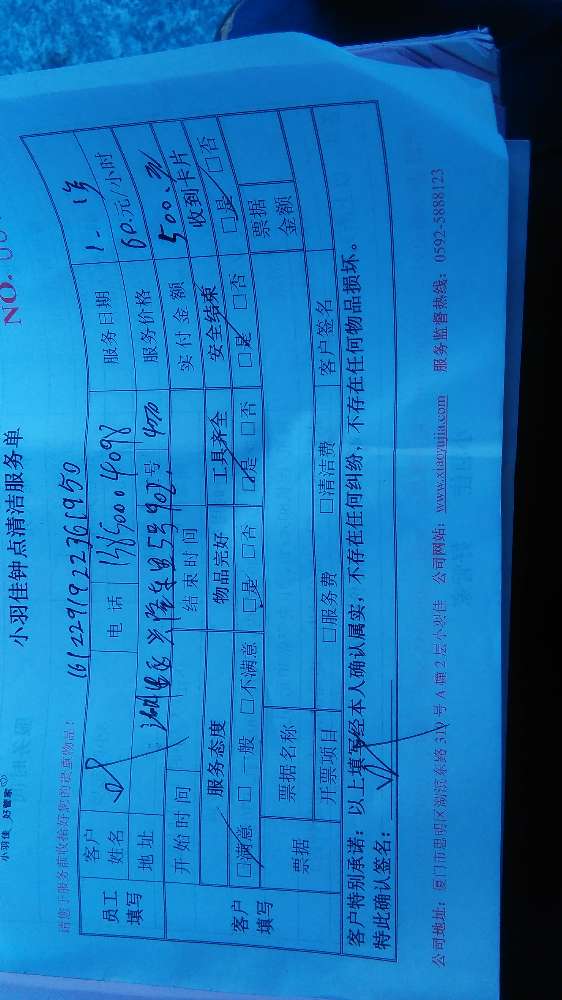 小羽佳 好管家
小羽佳钟点清洁服务单
NO.
请您于服务前收拾好您的贵重物品！
1612291922361950
员工填写 客户姓名 电话 服务日期
地址 号 4070 服务价格 60元/小时
客户填写 开始时间 结束时间 实付金额 500.
服务态度 物品完好 工具齐全 安全结束 收到卡片
□满意 □一般 □不满意 □是 □否 □是 □否 □是 □否 □是 □否
票据 票据名称 票据金额
开票项目 □服务费 □清洁费 客户签名
客户特别承诺：以上填写经本人确认属实，不存在任何纠纷，不存在任何物品损坏。
特此确认签名：
公司地址：厦门市思明区湖滨东路319号A幢2层小羽佳 公司网站：www.xiaoyujia.com 服务监督热线：0592-5888123